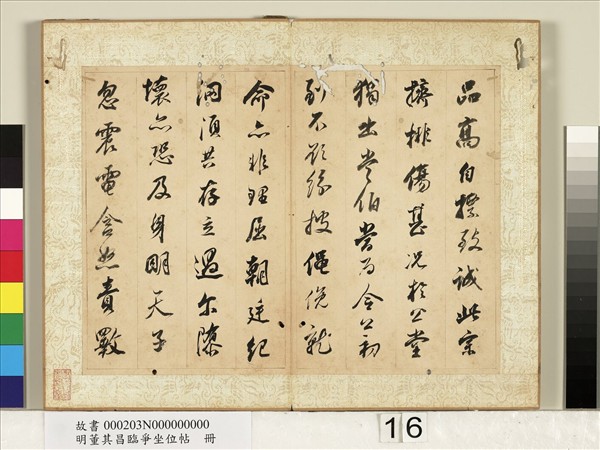 品高自標致誠此宗
擠排傷甚況於公堂
猶出常伯當為令公初
到不欲紛披僶俛就
命亦非理屈朝廷紀
綱須共存立過爾隳
壞亦恐及身明天子
忽震電含怒責斁
故書 000203N000000000
明董其昌臨爭坐位帖 冊
16